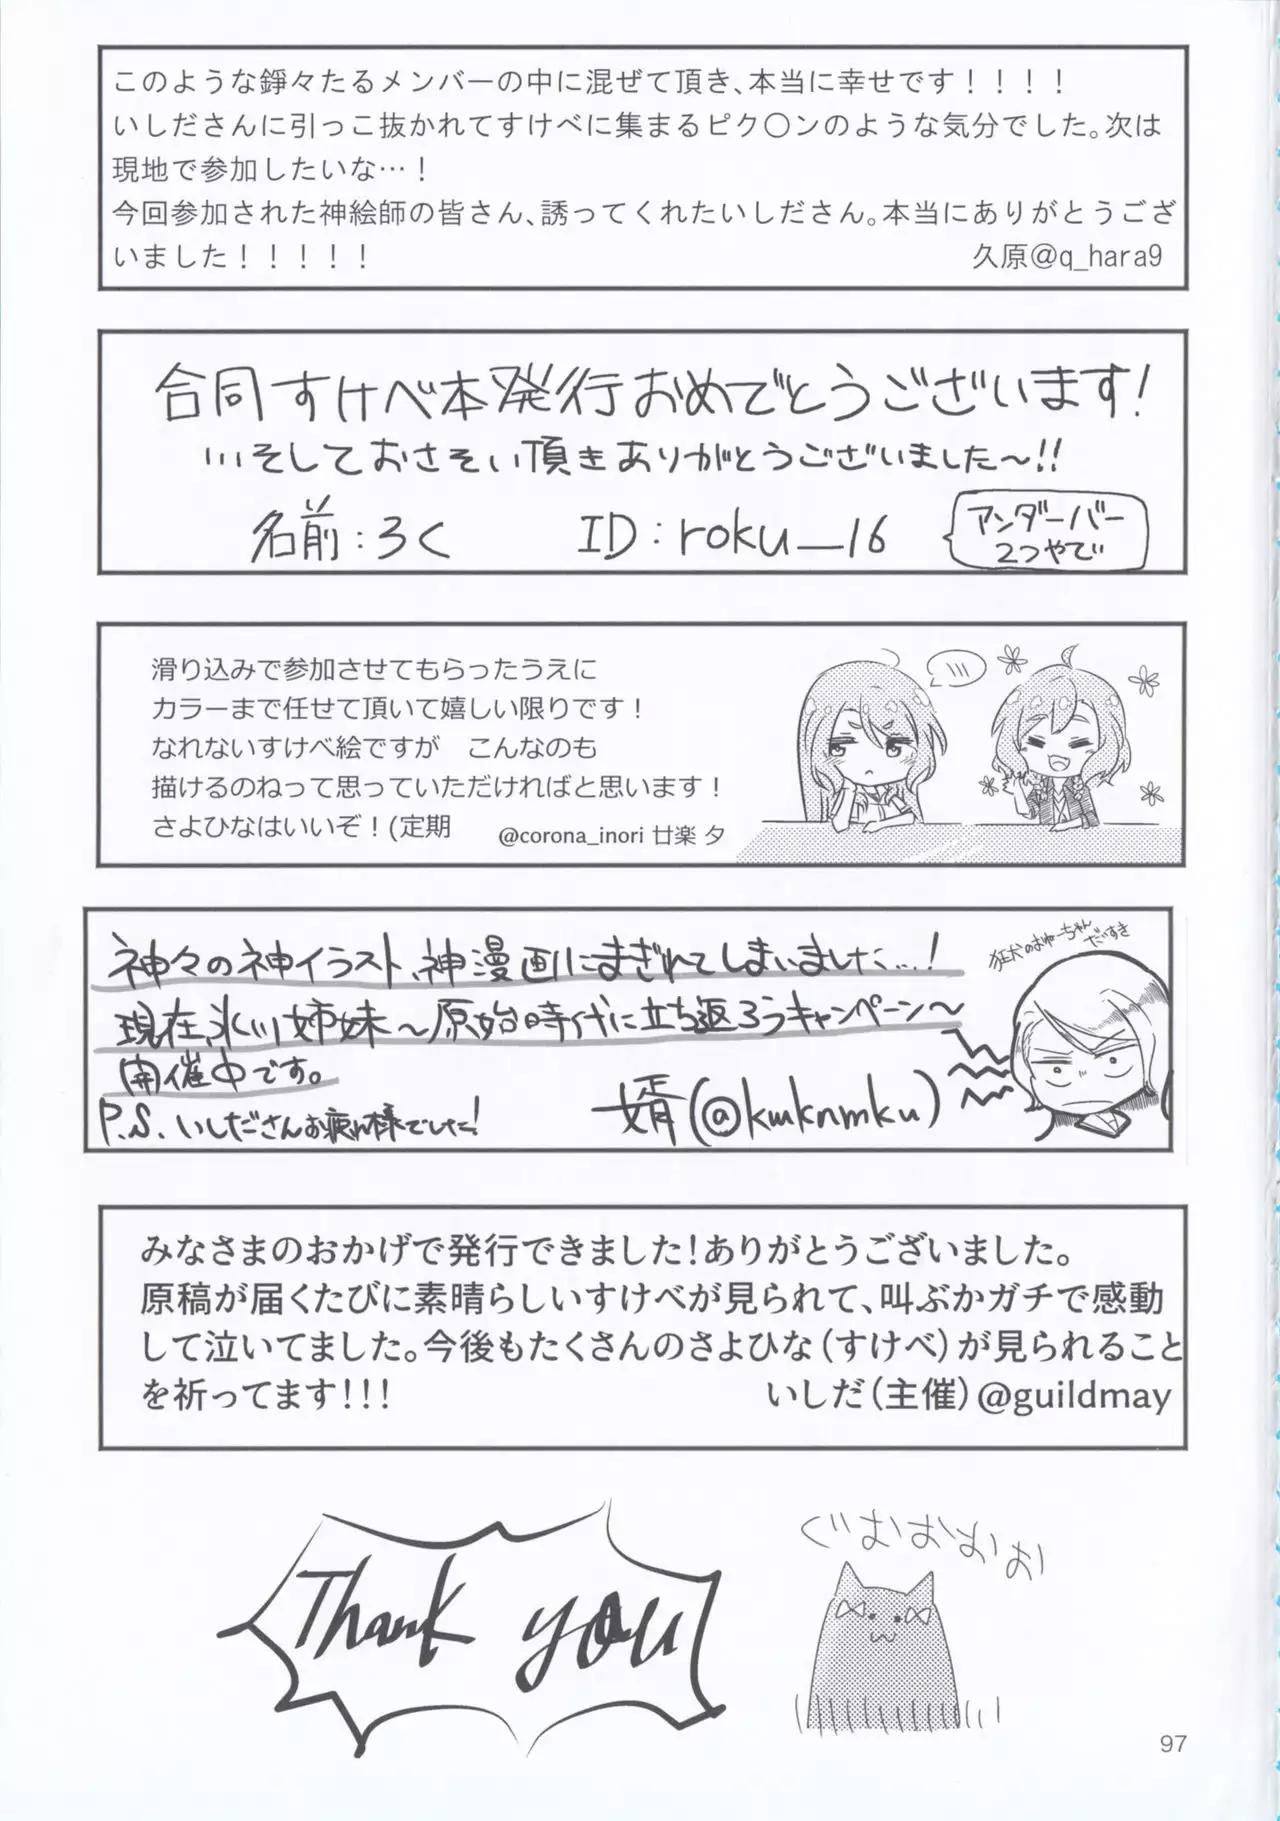 このような錚々たるメンバーの中に混ぜて頂き、本当に幸せです！！！！
いしださんに引っこ抜かれてすけべに集まるピク〇ンのような気分でした。次は
現地で参加したいな…！
今回参加された神絵師の皆さん、誘ってくれたいしださん。本当にありがとうござ
いました！！！！！
久原@q_hara9
合同すけべ本発行おめでとうございます!
...そしておさそい頂きありがとうございました〜!!
名前:ろく ID:roku__16
アンダーバー
2つやで
滑り込みで参加させてもらったうえに
カラーまで任せて頂いて嬉しい限りです！
なれないすけべ絵ですが　こんなのも
描けるのねって思っていただければと思います！
さよひなはいいぞ！(定期
@corona_inori 廿楽 夕
神々の神イラスト、神漫画にまぎれてしまいました...!
現在、氷川姉妹〜原始時代に立ち返ろうキャンペーン〜
開催中です。
P.S. いしださんお疲れ様でした!
婿(@kmknmku)
狂犬のおねーちゃん
だいすき
みなさまのおかげで発行できました！ありがとうございました。
原稿が届くたびに素晴らしいすけべが見られて、叫ぶかガチで感動
して泣いてました。今後もたくさんのさよひな（すけべ）が見られること
を祈ってます！！！
いしだ（主催）@guildmay
Thank you
ぐおおおおお
97